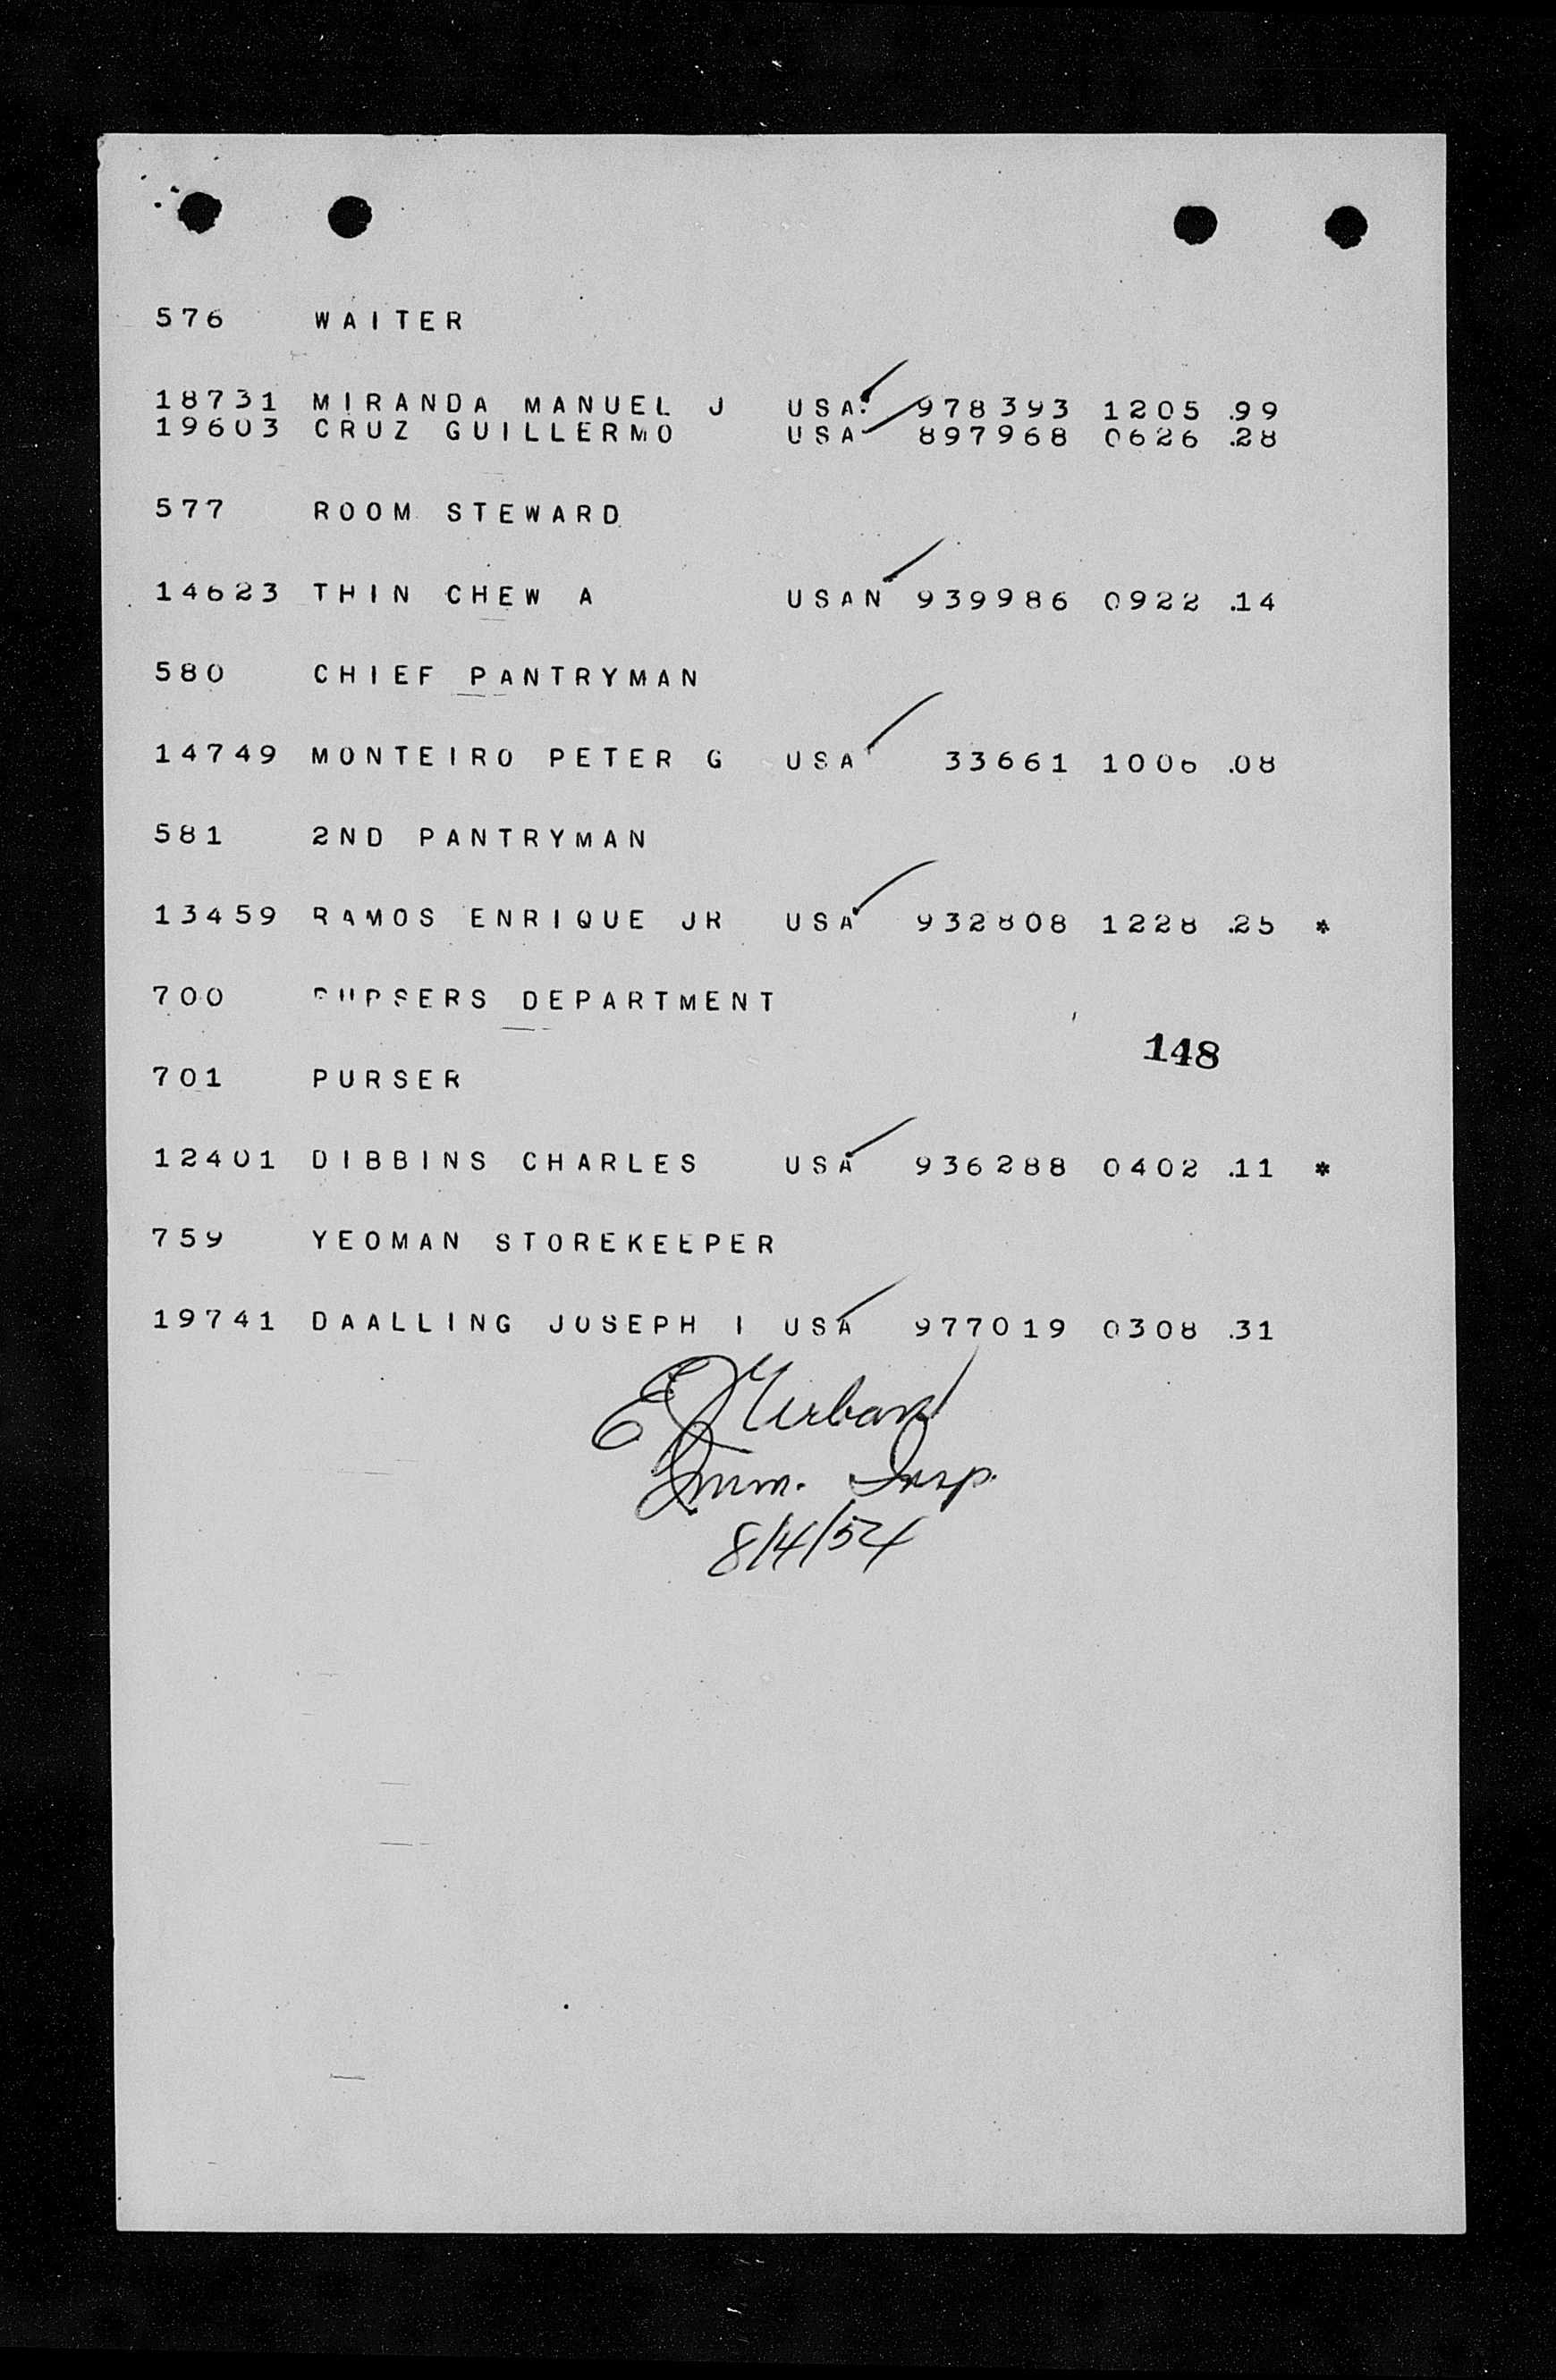 576 WAITER
18731 MIRANDA MANUEL J USA 978393 1205 .99
19603 CRUZ GUILLERMO USA 897968 0626 .28
577 ROOM STEWARD
14623 THIN CHEW A USAN 939986 0922 .14
580 CHIEF PANTRYMAN
14749 MONTEIRO PETER G USA 33661 1006 .08
581 2ND PANTRYMAN
13459 RAMOS ENRIQUE JR USA 932808 1228 .25 *
700 PURSERS DEPARTMENT
148
701 PURSER
12401 DIBBINS CHARLES USA 936288 0402 .11 *
759 YEOMAN STOREKEEPER
19741 DAALLING JOSEPH I USA 977019 0308 .31
E J Urban
Imm. Insp.
8/4/54